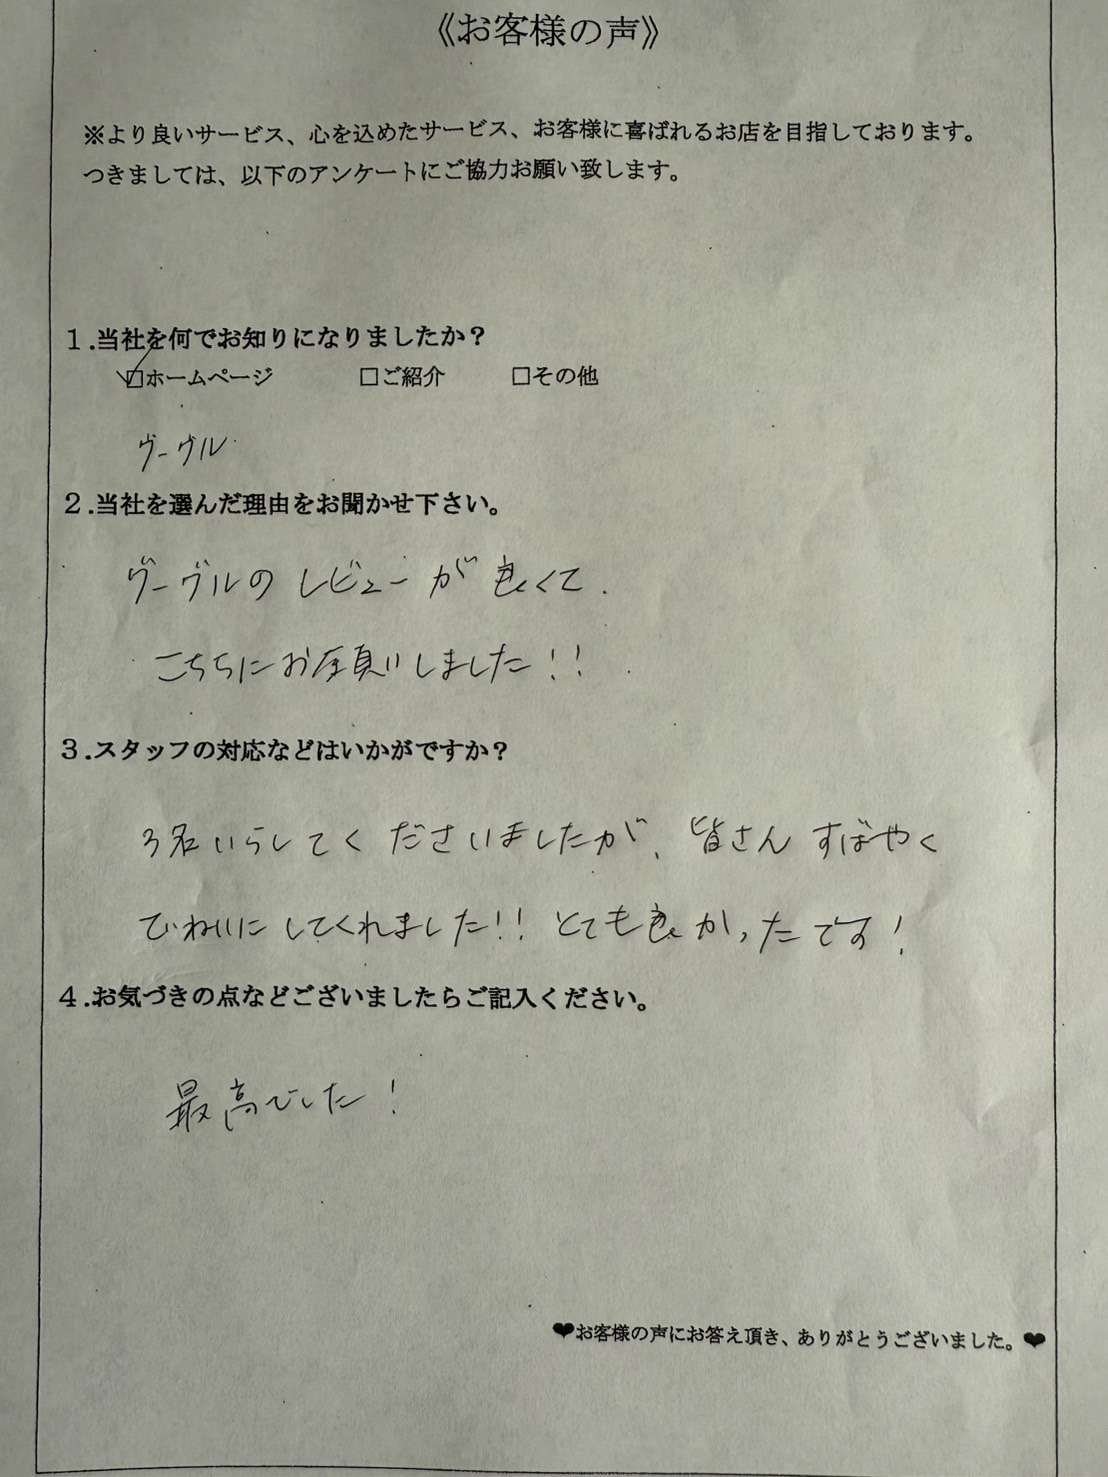 《お客様の声》
※より良いサービス、心を込めたサービス、お客様に喜ばれるお店を目指しております。
つきましては、以下のアンケートにご協力お願い致します。
１.当社を何でお知りになりましたか？
☑ホームページ □ご紹介 □その他
グーグル
２.当社を選んだ理由をお聞かせ下さい。
グーグルのレビューが良くて.
こちらにお願いしました!!
３.スタッフの対応などはいかがですか？
3名いらしてくださいましたが、皆さんすばやく
ていねいにしてくれました!!とても良かったです!
４.お気づきの点などございましたらご記入ください。
最高でした!
❤お客様の声にお答え頂き、ありがとうございました。❤